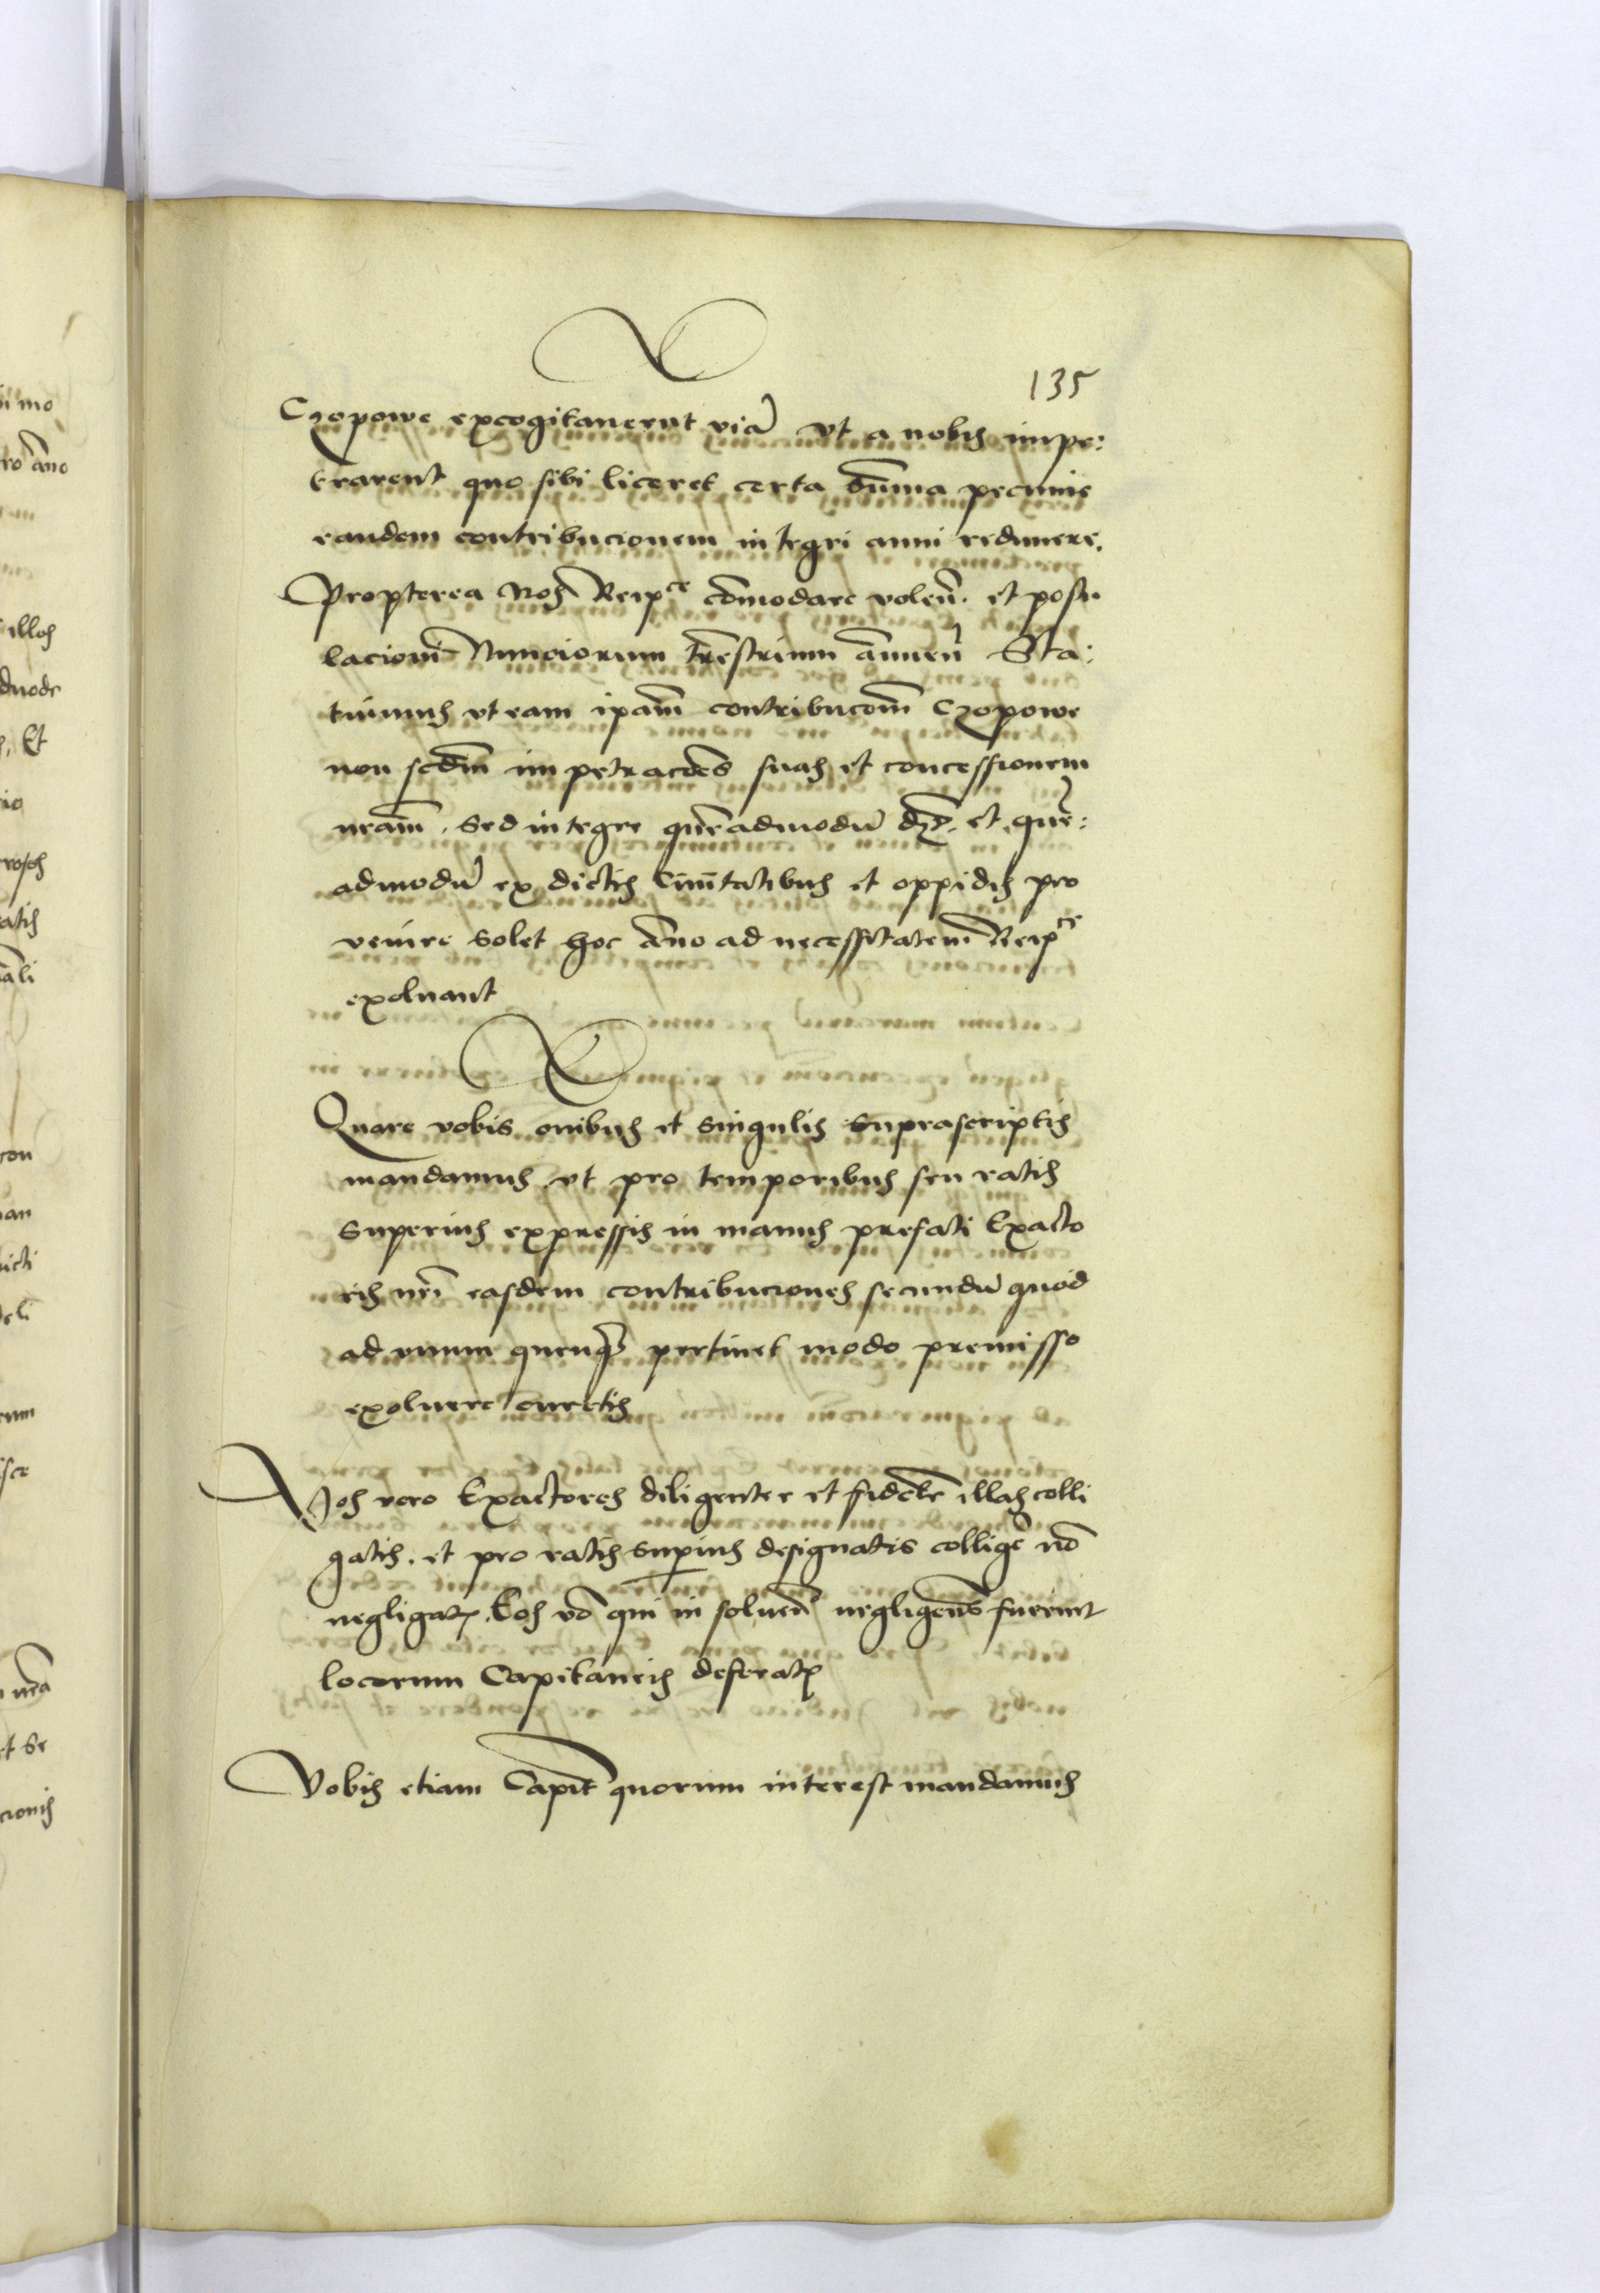 135
Czopowe excogitauerūt viā vt a nobis impe:
trarent quo sibi liceret certa sūma pecunie
eandem contribucionem integri anni redimere.
Propterea Nos Reipce cōmodare volen̄. et postu
lacioni Nunciorum trēstrium annuen̄ Sta:
tuimus vt eam ipām contribucōm Czopowe
non scdm̄ impetracōes suas et concessionem
nrām. Sed integre quēadmodū et quē:
admodū ex dictis Ciuitatibus et oppidis pro
uenire solet hoc āno ad necessitatem Reipce
exoluant
Quare vobis om̄ibus et singulis suprascriptis
mandamus vt pro temporibus seu ratis
superius expressis in manus prefati Exacto
ris nrī easdem contribuciones secundū quod
ad vnum quenqȝ pertinet modo premisso
exoluere curetis
Vos vero Exactores diligenter et fidelr̄ illas colli
gatis. et pro ratis supius designatis colligē nō
negligatȝ. Eos vō qui in soluen̄ negligen̄s fuerint
locorum Capitaneis deferatȝ
Vobis etiam Capit̄ quorum interest mandamus